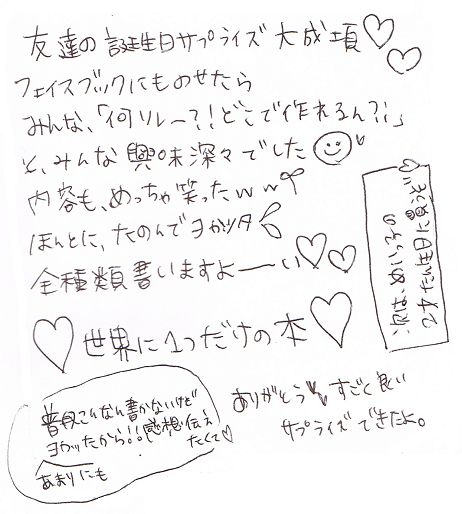 友達の誕生日サプライズ大成項♡♡
フェイスブックにものせたら
みんな、「何ソレー?!どこで作れるん?!」
と、みんな興味深々でした
内容も、めっちゃ笑ったww
ほんとに、たのんでヨカッタ
全種類書いますよーーい♡♡
♡世界に1つだけの本♡
次は、めいっ子の
2才たん生日に買うぞ♡
普段こんなん書かないけど
あまりにもヨカッたから!!感想伝え
たくて♡
ありがとう すごく良い
サプライズできたよ。